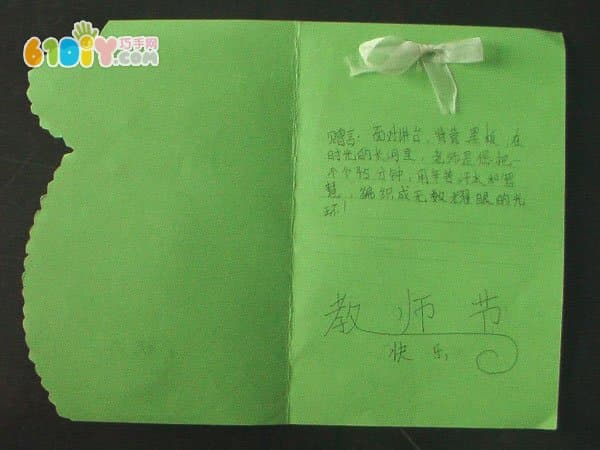 61DIY巧手网
.com
赠言：面对讲台，背靠黑板，在
时光的长河里，老师是您把一
个个45分钟，用辛苦、汗水和智
慧，编织成无数耀眼的光
环！
教师节
快乐